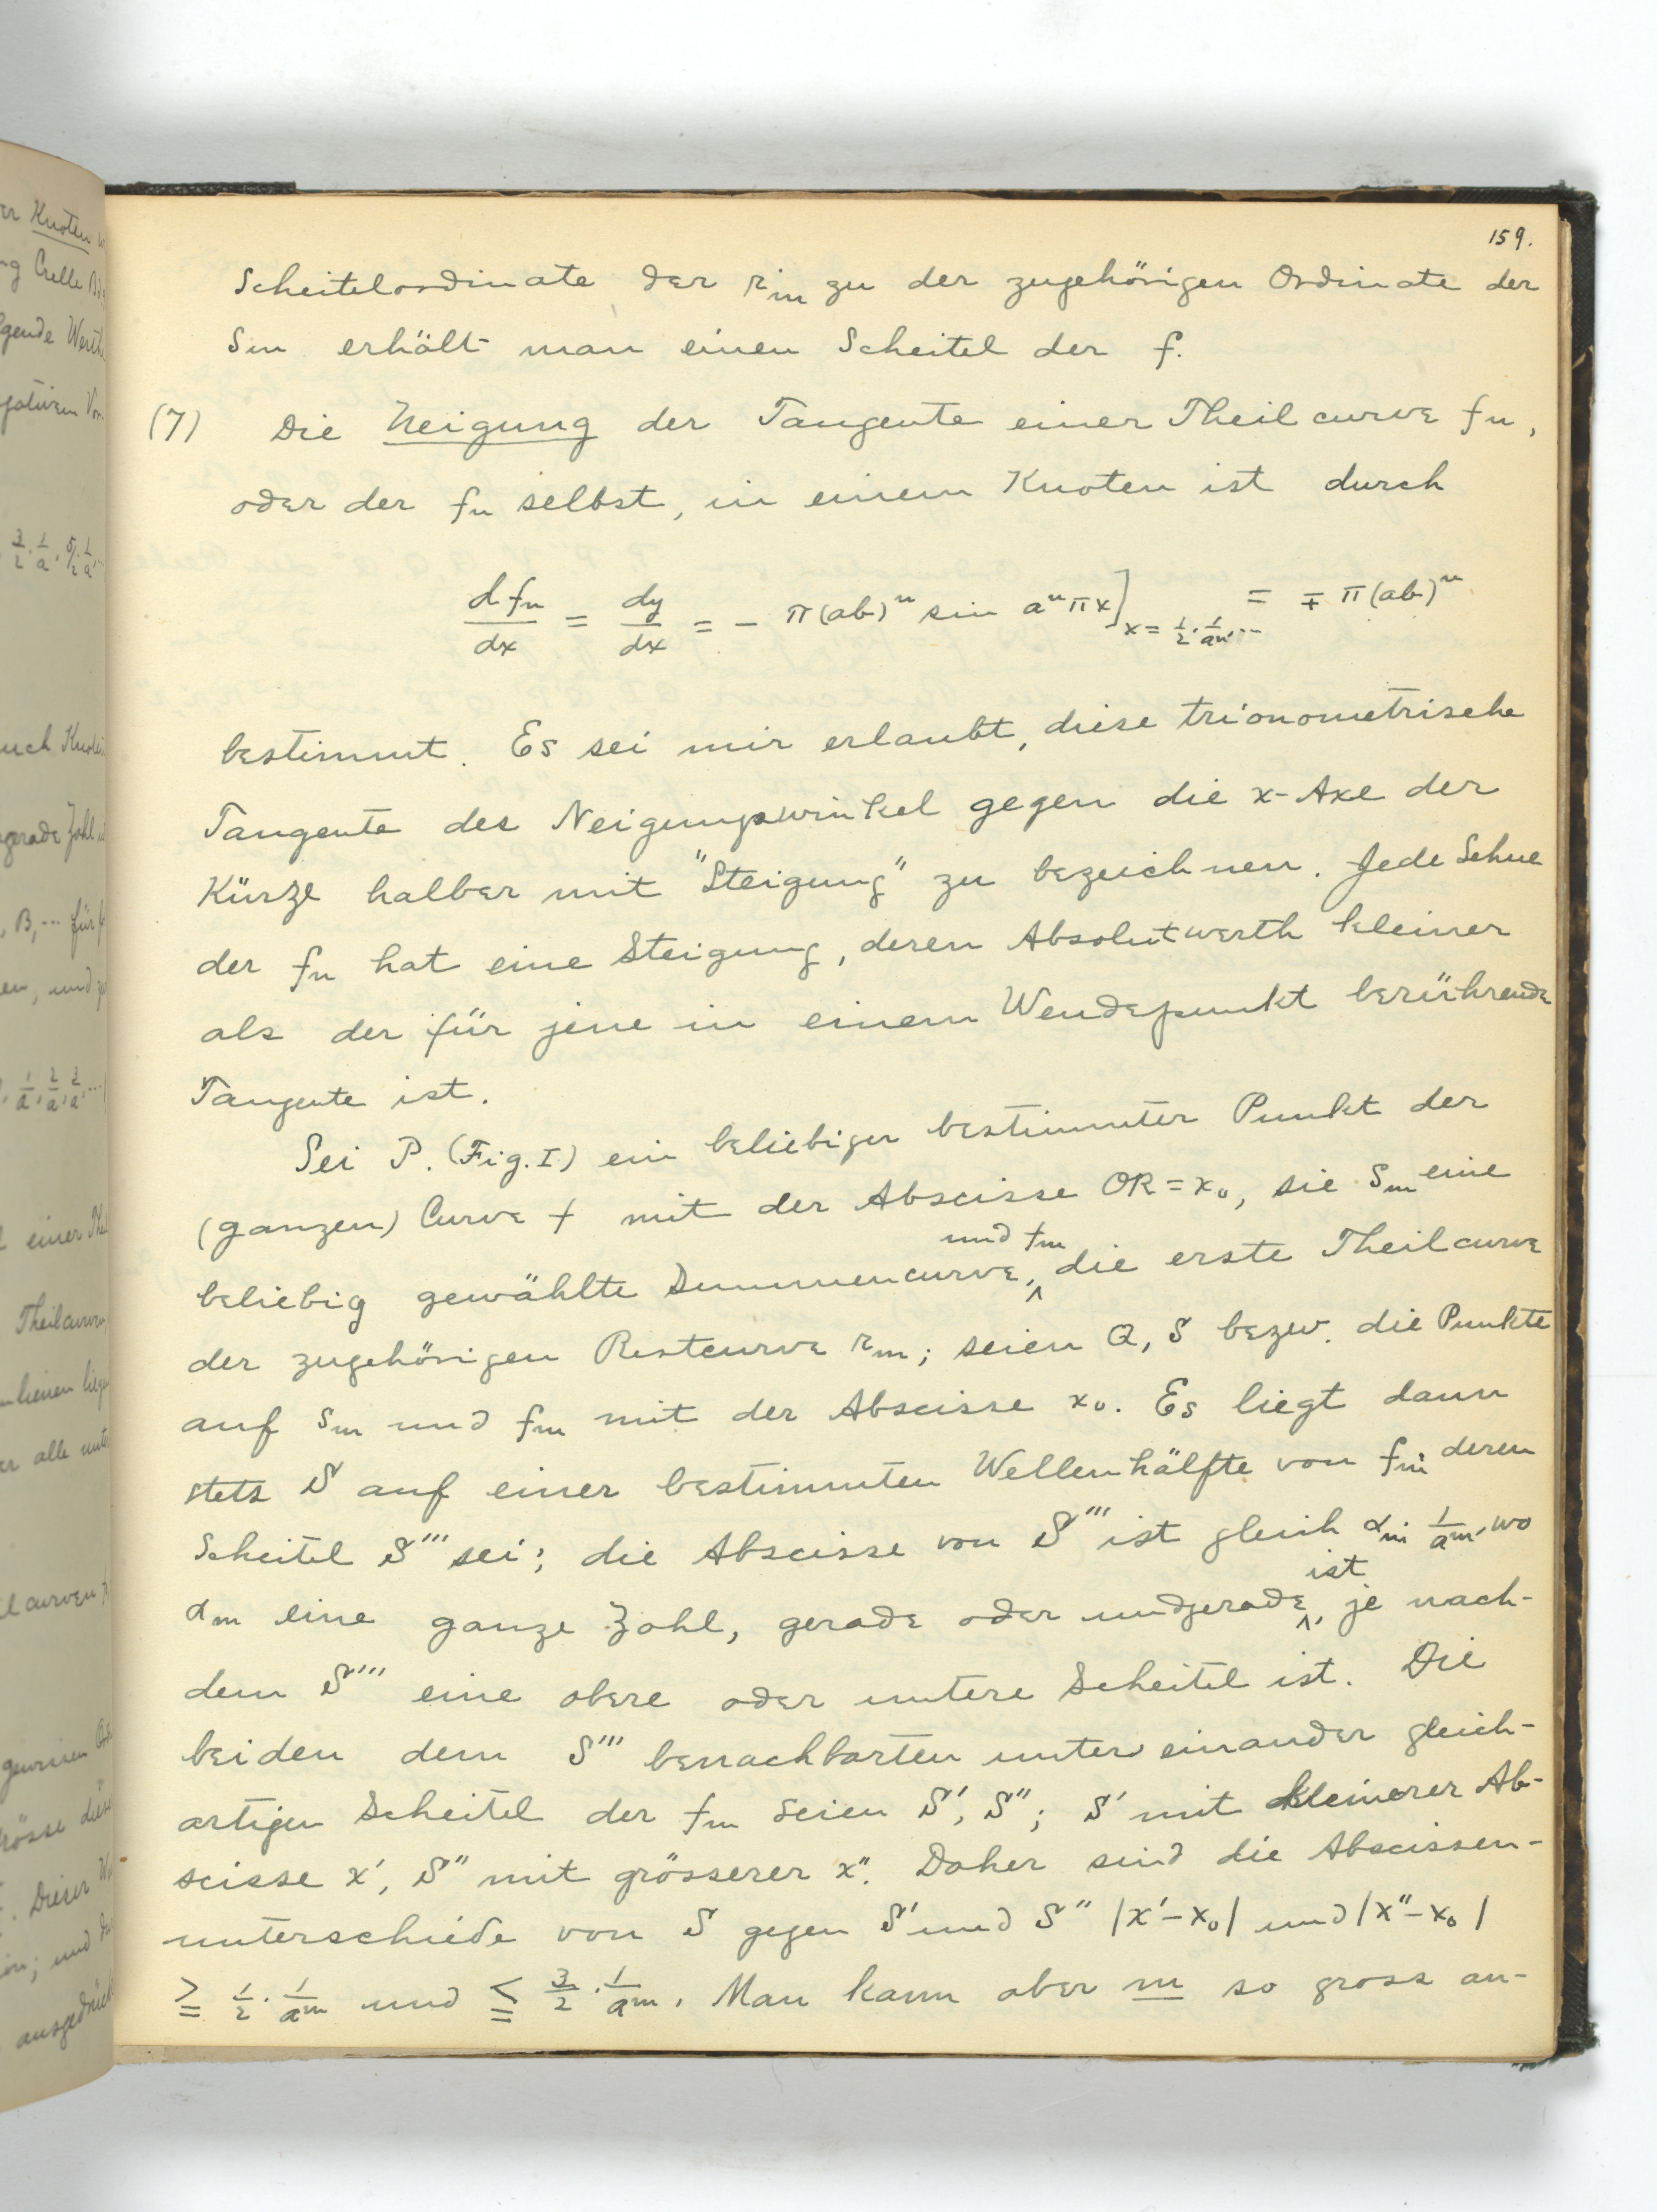 159.
Scheitelordinate der r_m zu der zugehörigen Ordinate der
s_m erhält man einen Scheitel der f.
(7) Die Neigung der Tangente einer Theilcurve f_n,
oder der f_n selbst, in einem Knoten ist durch
df_n/dx = dy/dx = - π(ab)^n sin a^n πx]_{x = 1/2 · 1/a^n, ...} = ∓ π(ab)^n
bestimmt. Es sei mir erlaubt, diese trionometrische
Tangente des Neigungswinkel gegen die x-Axe der
Kürze halber mit "Steigung" zu bezeichnen. Jede Sehne
der f_n hat eine Steigung, deren Absolutwerth kleiner
als der für jene in einem Wendepunkt berührende
Tangente ist.
Sei P. (Fig. I) ein beliebiger bestimmter Punkt der
(ganzen) Curve f mit der Abscisse OR = x_0, sie s_m eine
beliebig gewählte Summencurve, und f_m die erste Theilcurve
der zugehörigen Restcurve r_m; seien Q, S bezw. die Punkte
auf s_m und f_m mit der Abscisse x_0. Es liegt dann
stets S auf einer bestimmten Wellenhälfte von f_m, deren
Scheitel S''' sei; die Abscisse von S''' ist gleich α_m · 1/a^m, wo
α_m eine ganze Zahl, gerade oder undgerade ist, je nach-
dem S''' eine obere oder untere Scheitel ist. Die
beiden dem S''' benachbarten unter einander gleich-
artigen Scheitel der f_m seien S', S''; S' mit kleinerer Ab-
scisse x', S'' mit grösserer x''. Daher sind die Abscissen-
unterschiede von S gegen S' und S'' |x'-x_0| und |x''-x_0|
≧ 1/2 · 1/a^m und ≦ 3/2 · 1/a^m. Man kann aber m so gross an-